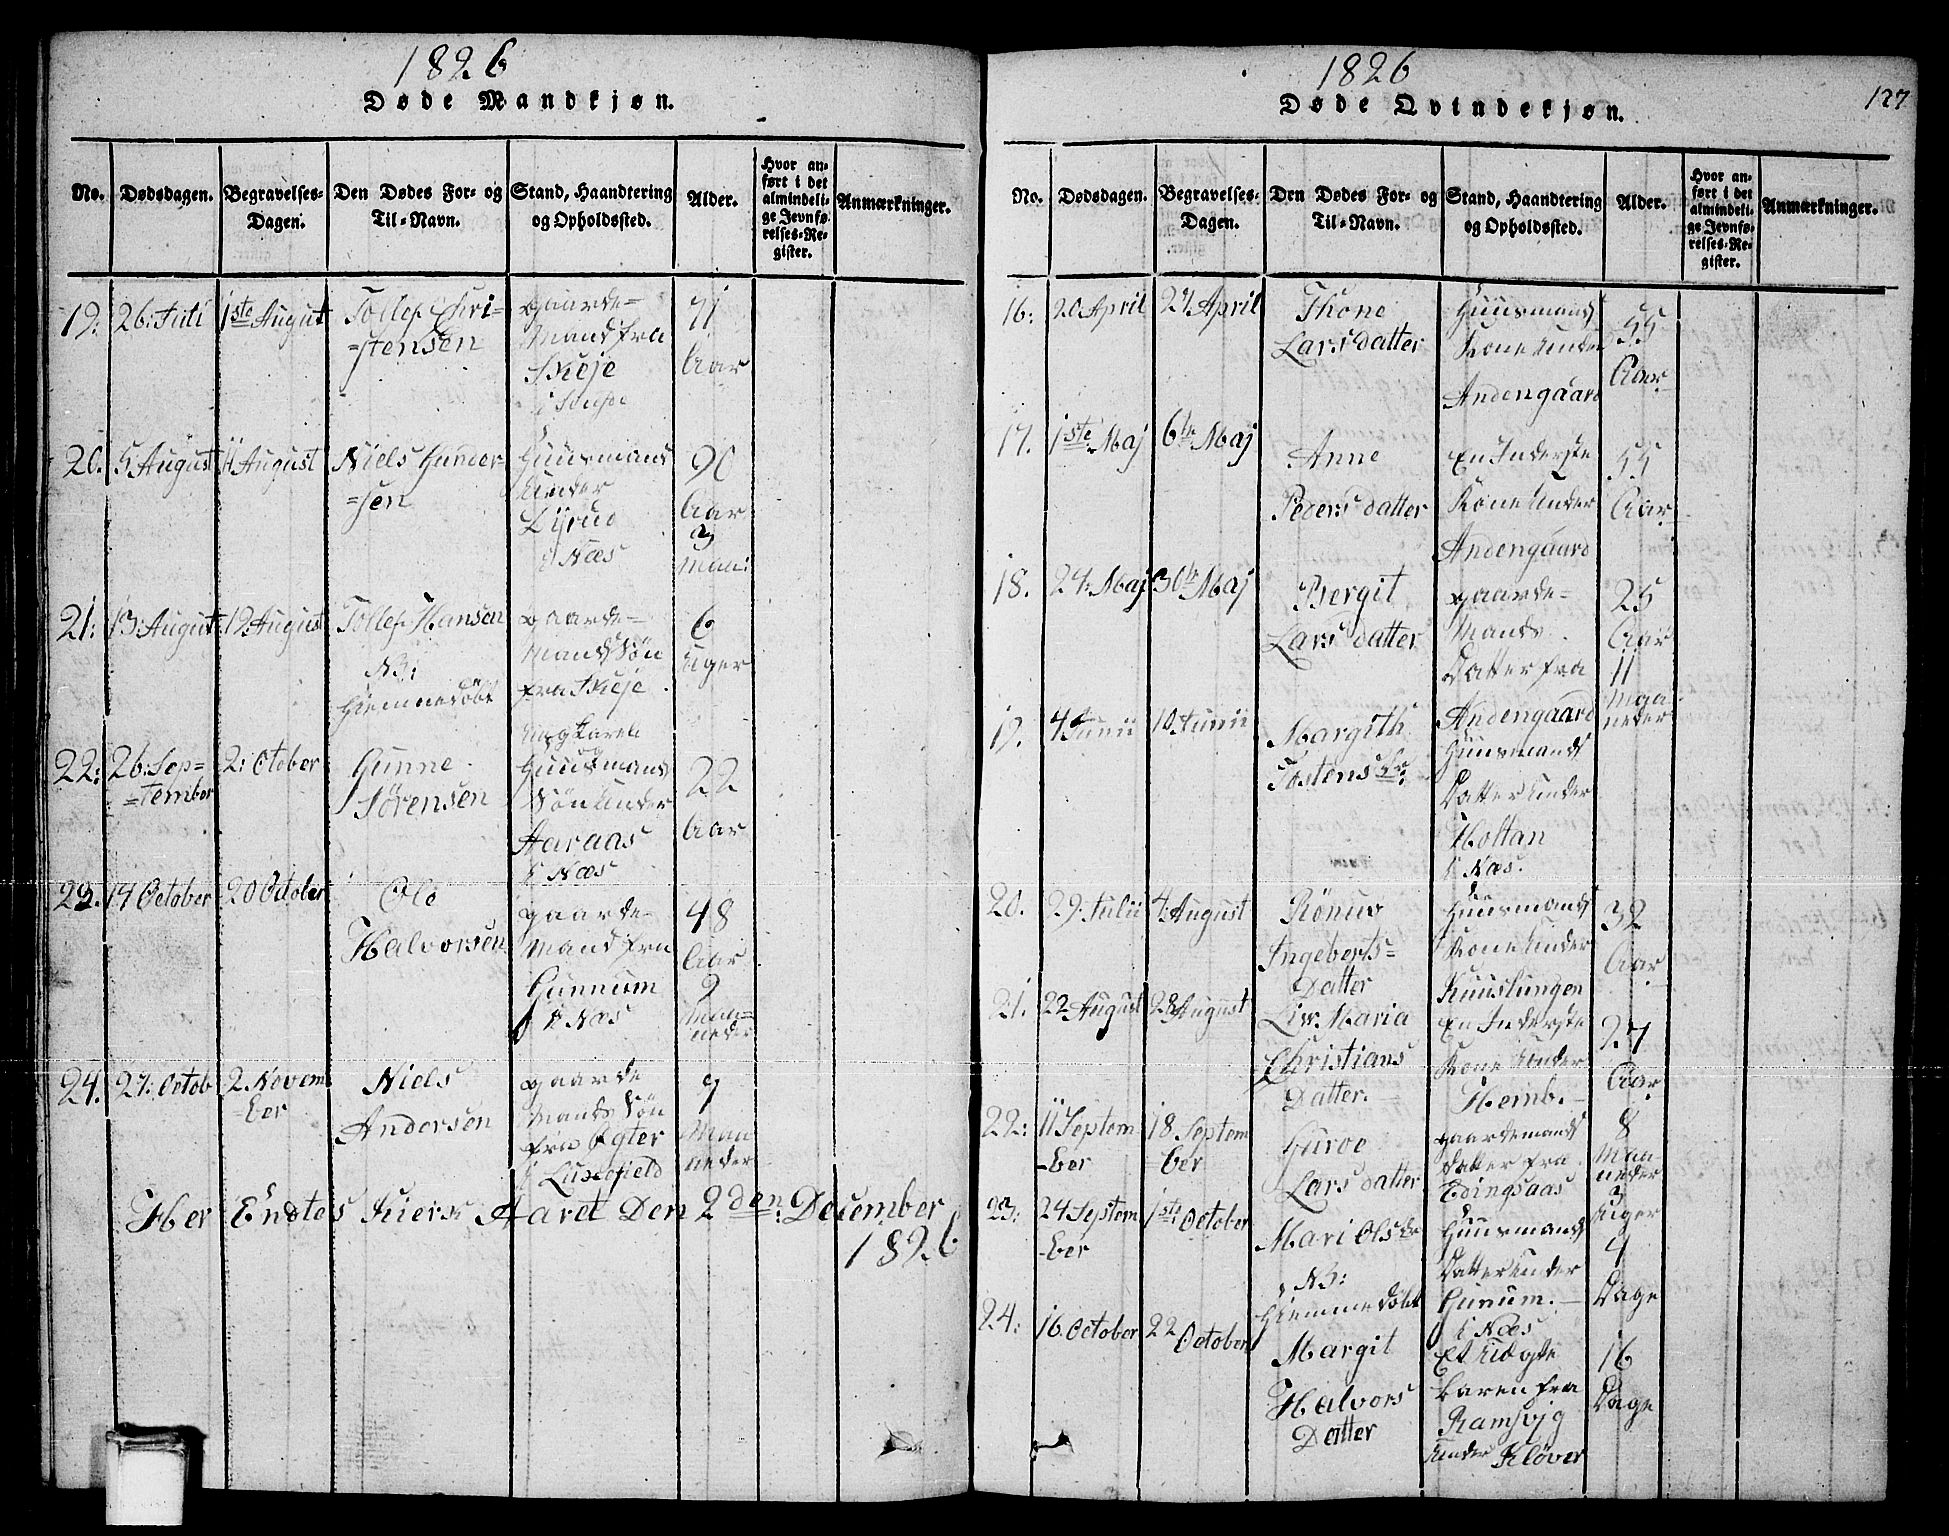 1826
Døde Mandkjøn.
No. Dødsdagen. Begravelses-Dagen. Den Dødes For- og Til-Navn. Stand, Haandtering og Opholdssted. Alder. Hvor anført i det almindelige Jevnførelses-Register. Anmærkninger.
19: 26: Juli 1ste August Tollef Chri-
=stensen
gaarde=
Mand fra
Skeje
Aar
20. 5 August 11 August Niels Gunder-
=sen
Huusmand
under
i Næs
90
Aar
3
Maan:
21: 13: August 19: August Tollef Hansen
NB:
Hiemmedøbt
gaarde=
Mands Søn
fra Skeje.
6
Uger
22: 26: Sep=
=tember
2: Otober
Gunne
Sörensen
Ungkarl
og
Huusmands
Søn under
Aaraas
i Næs
22
Aar
23. 14 October 20 October Ole
Halvorsen
gaarde-
Mand fra
Gunnum
i Næs
48
Aar
9
Maa=
neder
24. 27: Octob 2 Novem
-ber
Niels
Andersen
gaarde
Mands Søn
fra Ögter
i Luxefield
9
Maa
neder
Her Endtes Kierk Aaret Den 2den December
1826
1826
127
Døde Qvindekjøn.
No. Dødsdagen. Begravelses-Dagen. Den Dødes For- og Til-Navn. Stand, Haandtering og Opholdssted. Alder. Hvor anført i det almindelige Jevnførelses-Register. Anmærkninger.
16: 20 April 27 April Thone
Larsdatter
Huusmands
Kone under
Andengaard
55
Aar
17. 1ste Maj 6te Maj
Anne
Pedersdatter
En Inderste
Kone under
Andengaard
55
Aar
18. 24: Maj 30te Maj Bergit
Larsdatter
gaarde-
Mands
Datter fra
Andengaard
25
Aar
11
Maa
neder
19. 4 Junii 10 Junii Margith
Tostens Dr:
Huusmands
Datter under
Holtan
i Næs.
20. 29: Julii 4: August Rönuv
Ingeberts=
Datter
Huusmands
Kone under
Kuuslungen
32
Aar
21. 22 August 28 August Liv. Maria
Christians
Datter.
En Inderste
Kone under
Hemb.
27
Aar
22: 11 Septem
-ber
18 Septem
ber
Guroe
Larsdatter
gaardemands
Datter fra
Edingsaas
8
Maa
neder
3
Uger
23: 24 Septem
-ber
1ste October
Mari Ols Dr
NB:
Hiemmedöbt
Huusmands
Datter under
Gunum.
i Næs
4
Dage
24: 16 October 22 October
Margit
Halvors
Datter
Et Uægte
Baren fra
Ramsvig
under Klöver
16
Dage